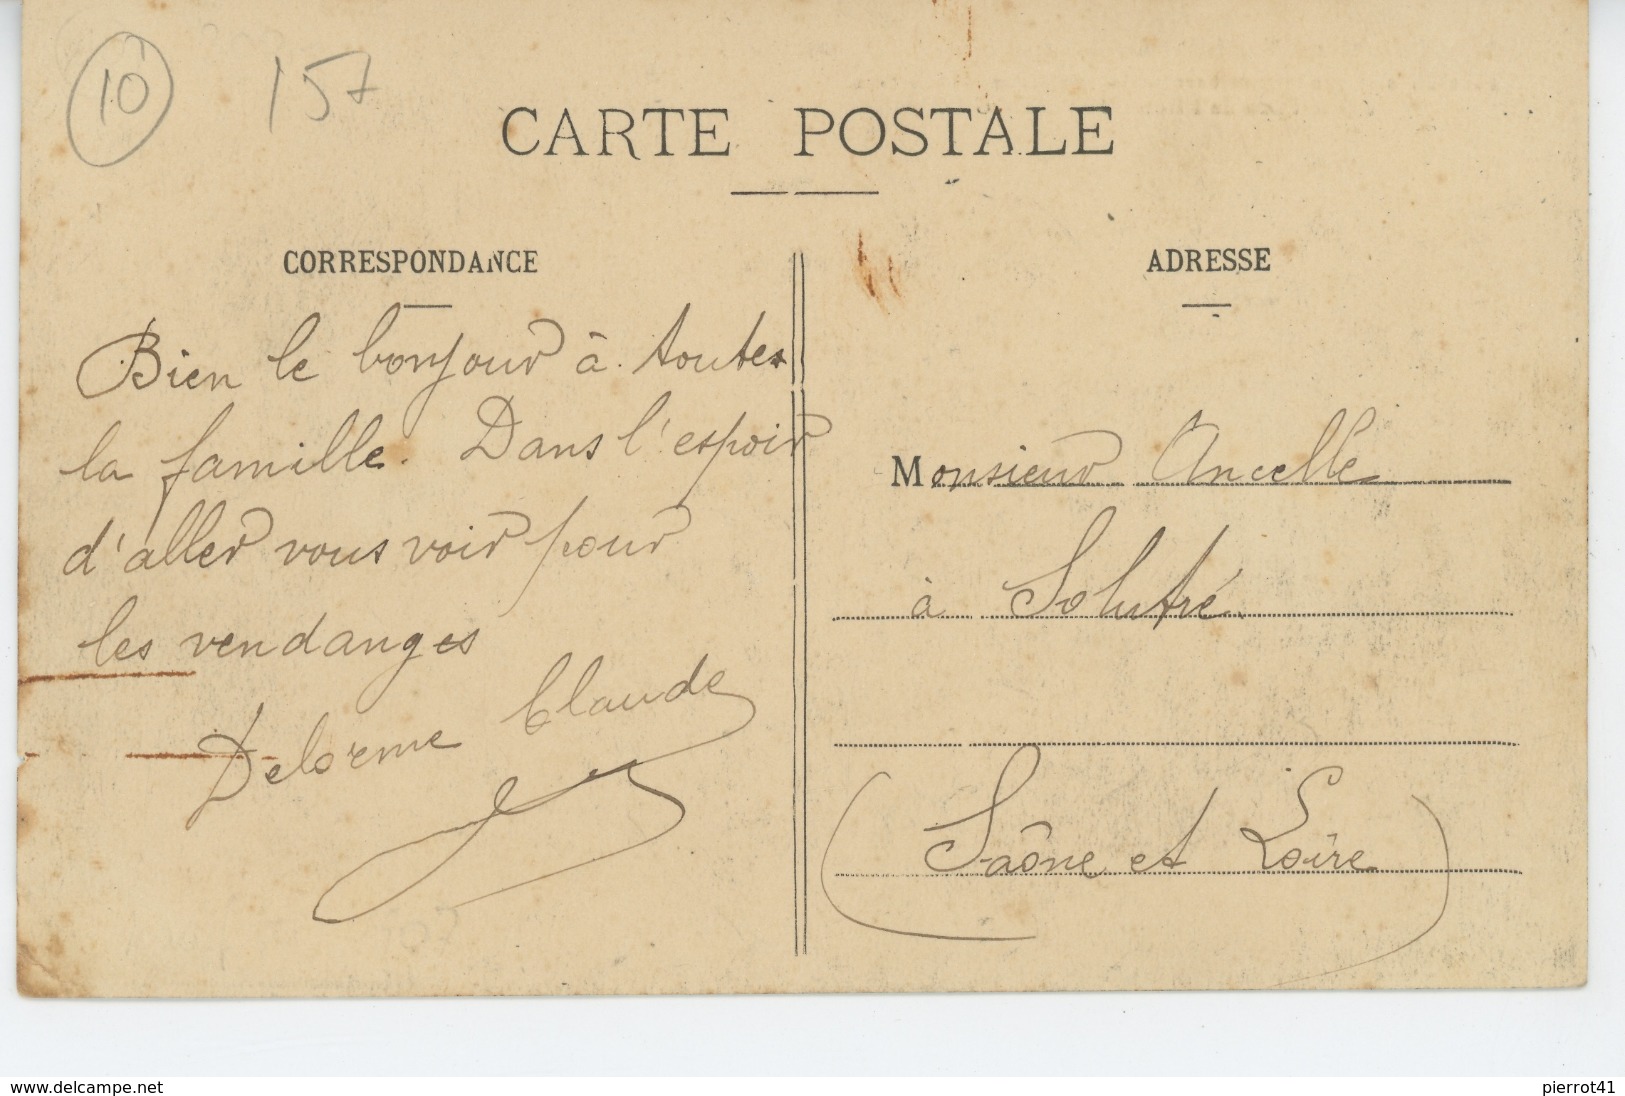 10 157
CARTE POSTALE
CORRESPONDANCE
Bien le bonjour à toutes
la famille. Dans l'espoir
d'aller vous voir pour
les vendanges
Delorme Claude
ADRESSE
Monsieur Ancelle
à Solutré
(Saône et Loire)
www.delcampe.net
pierrot41